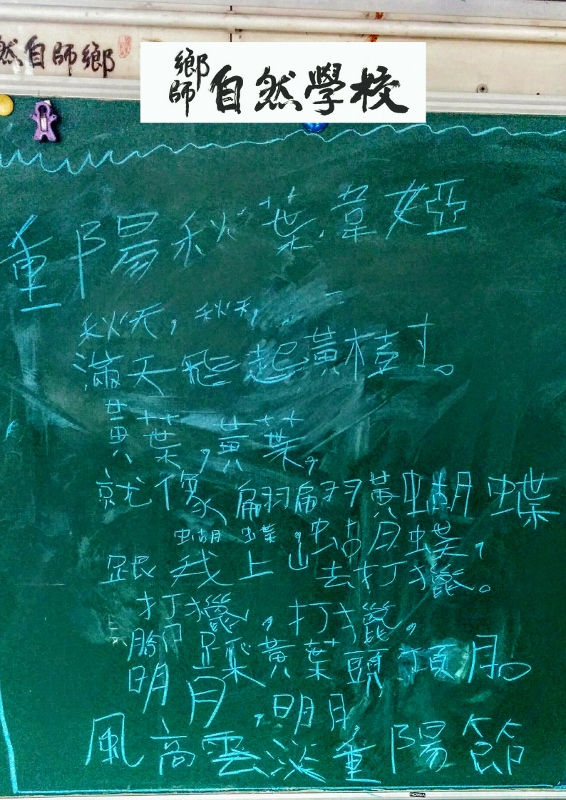 然自師鄉
鄉師自然學校
重陽秋葉 韋婭
秋天，秋天，
滿天飛起黃樹
黃葉，黃葉，
就像翩翩黃蝴蝶
蝴蝶，蝴蝶，
跟我上山去打獵。
打獵，打獵，
腳踩黃葉頭頂月。
明月，明月，
風高雲淡重陽節